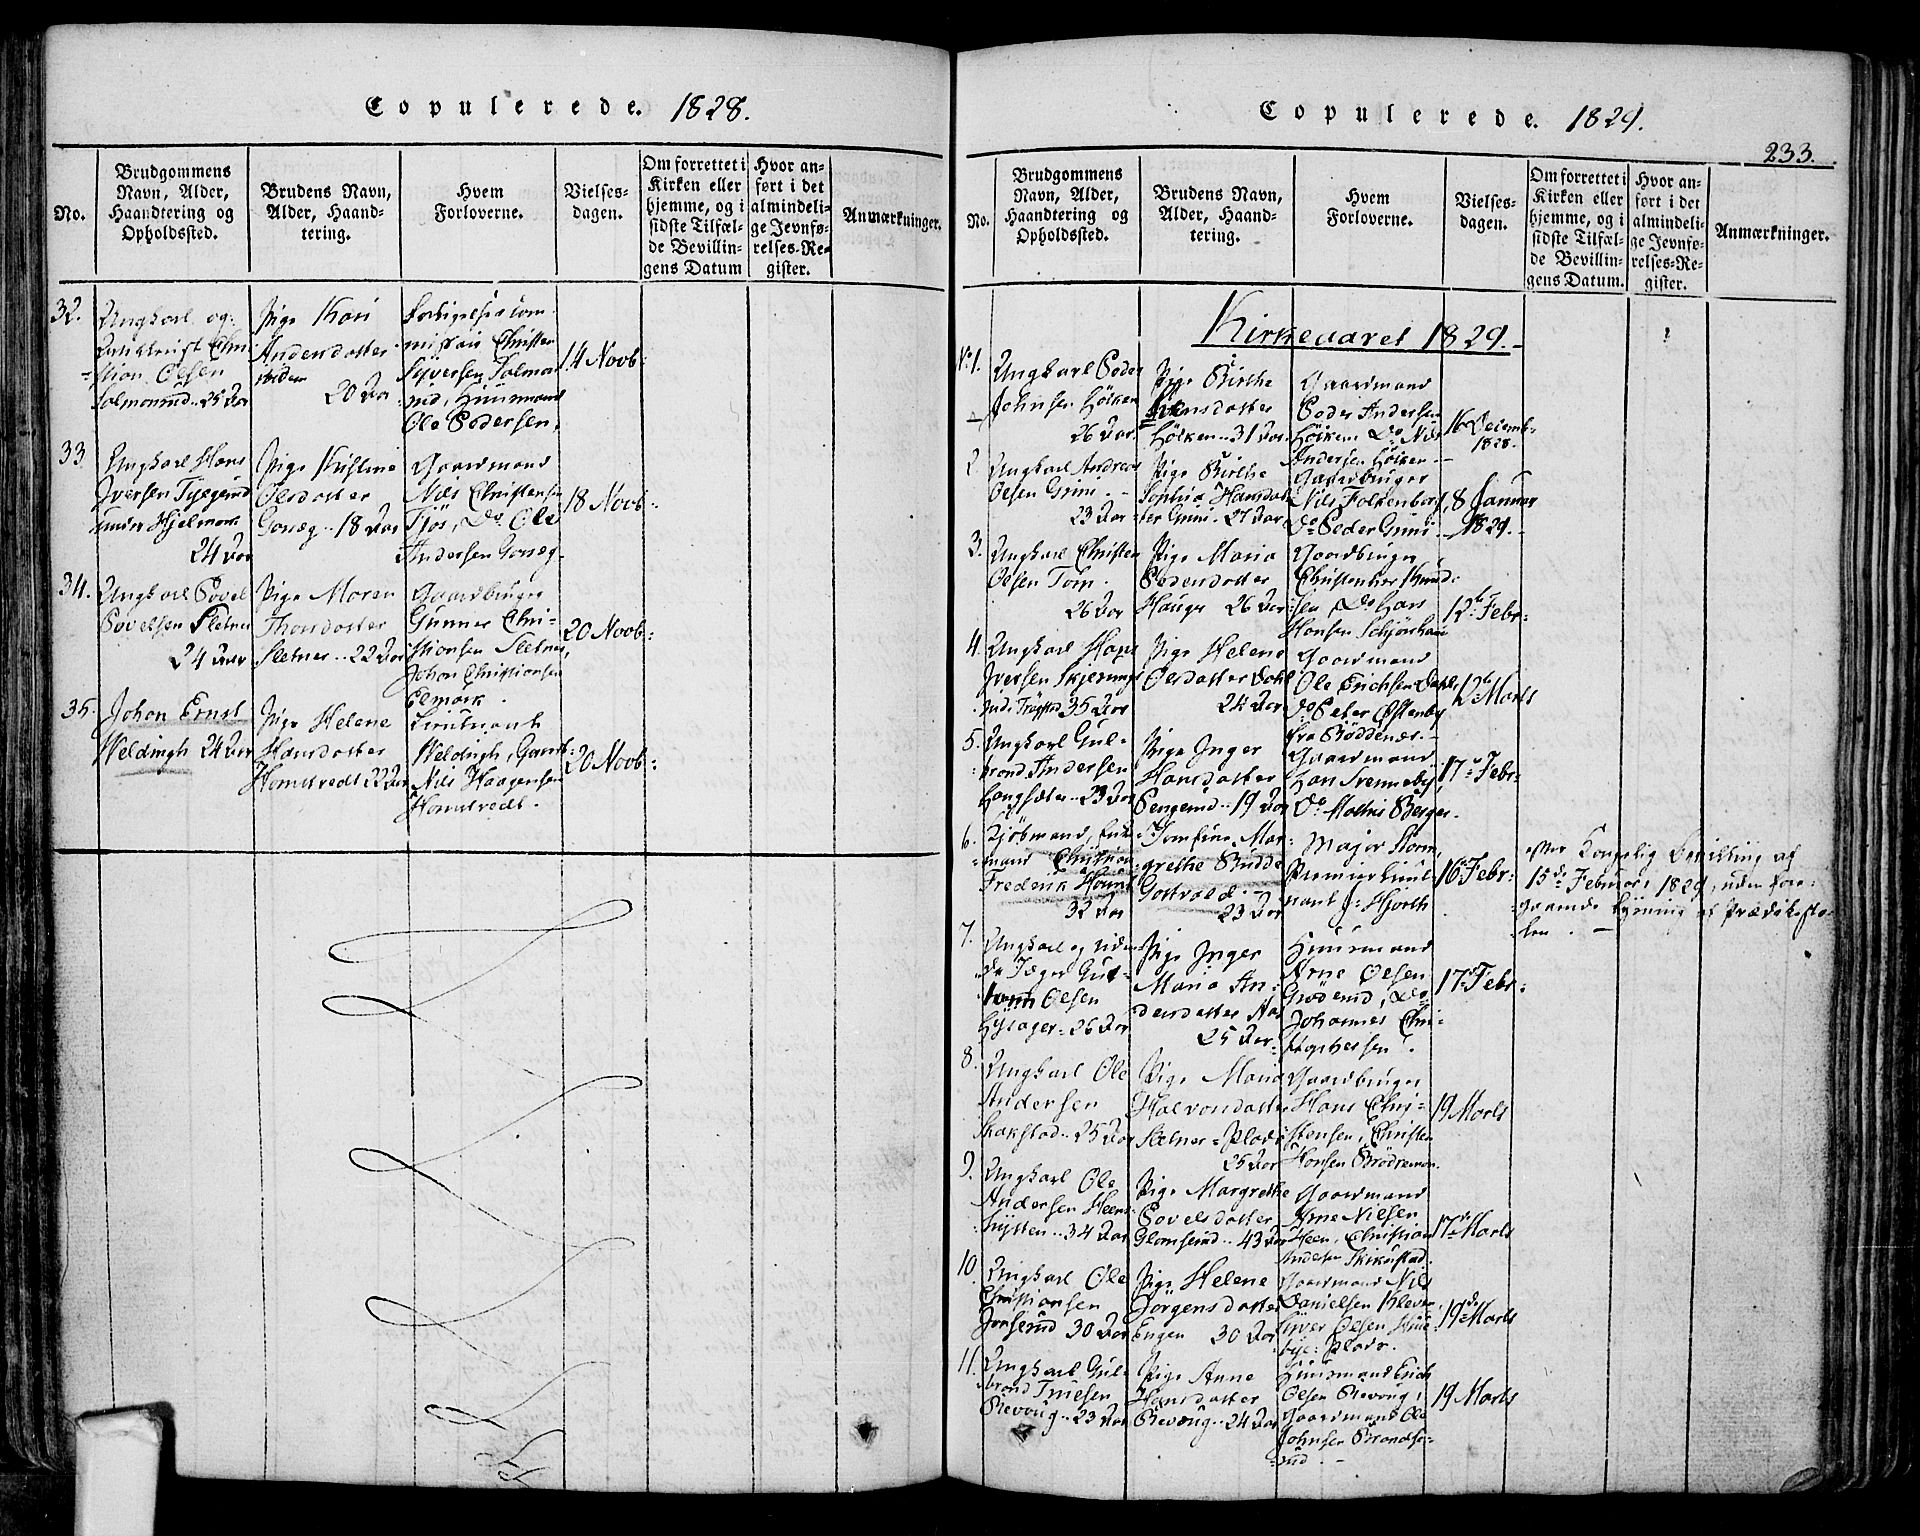 Copulerede. 1828.
No.
Brudgommens
Navn, Alder,
Haandtering og
Opholdssted.
Brudens Navn,
Alder, Haand-
tering.
Hvem
Forloverne.
Vielses-
dagen.
Om forrettet i
Kirken eller
hjemme, og i
sidste Tilfæl-
de Bevillin-
gens Datum
Hvor an-
ført i det
almindeli-
ge Jevnfø-
relses-Re-
gister.
Anmærkninger.
32.
Ungkarl og
stian Olsen
25 Aar
Pige Kari
Andersdatter
ibidem
20 Aar
Christen
Syversen
Huusmand
Ole Pedersen,
14 Novb:
33
Ungkarl Hans
Iversen
under Hjelmark
24 Aar
Pige Kistine
Olsdatter
Gosæg.. 18 Aar
Gaardmand
Nils Christensen
Fjøs, Do Ole
Andersen Gosæg.
18 Novb:
34.
Ungkarl Povel
Povelsen Sletner
24 Aar
Pige Maren
Thorsdatter
Sletner.. 22 Aar
Gaardbruger
Gunner Chri-
stiansen Sletner,
Johan Christiansen
Elmark.
20 Novb:
35.
Johan Ernst
Weldingh 24 Aar
Pige Helene
Hansdatter
Homstvedt 22 Aar
Lieutnant
Weldingh, Gaardm:
Nils Haagensen
Homstvedt.
20 Novb:
Copulerede. 1829.
233.
No.
Brudgommens
Navn, Alder,
Haandtering og
Opholdssted.
Brudens Navn,
Alder, Haand-
tering.
Hvem
Forloverne.
Vielses-
dagen.
Om forrettet i
Kirken eller
hjemme, og i
sidste Tilfæl-
de Bevillin-
gens Datum.
Hvor an-
ført i det
almindeli-
ge Jevnfø-
relses-Re-
gister.
Anmærkninger.
Kirkeaaret 1829.
No 1.
Ungkarl Peder
Johnsen Hölken
26 Aar
Pige Birthe
Hansdatter
Hölken.. 31 Aar
Gaardmand
Peder Andersen
Hölken Do Nils
Andersen Hölken
16 Decemb:
1828.
2.
Ungkarl Andreas
Olsen Grini.
23 Aar
Pige Birthe
Sophia Hansdat-
ter Grini. 27 Aar
Gaardbruger
Nils Folkenborg,
Do Peder Grini
8 Januar
1829.
3.
Ungkarl Christen
Olsen Torp.
26 Aar
Pige Maria
Pedersdatter
Hauge 26 Aar
Gaardbruger
Christopher Knud-
sen, Do Hans
Hansen Schjönhaug
12te Febr:
4.
Ungkarl Hans
Iversen
35 Aar
Pige Helene
Olsdatter Dahl
24 Aar
Gaardmand
Ole Erichsen Dahl,
Do Peter Østenby
fra Röddenæs.
12te Marts
5.
Ungkarl Gul-
brand Andersen
Langsæter.. 23 Aar
Pige Inger
Hansdatter
Pengerud.. 19 Aar
Gaardmand
Hans
Do Mathis Berger.
17de Febr:
6.
Kjöbmand,
mand Christian
Frederik
32 Aar
Jomfrue Mar-
grethe Budde
Gottvald.
23 Aar
Major Storm,
Premierlieut-
nant J. Hjorth
16 Febr:
efter Kongelig Bevilling af
15de Februar 1829, uden fore-
gaaende Lysning af Prædikesto-
len.
7.
Ungkarl og
Jæger Gul-
brand Olsen
26 Aar
Pige Inger
Maria An-
dersdatter Næs
25 Aar
Huusmand
Arne Olsen
Gröderud, Do
Johannes Chri-
stophersen.
17de Febr:
8.
Ungkarl Ole
Andersen
Skakstad.. 25 Aar
Pige Maria
Halvorsdatter
Sletner=plads
25 Aar
Gaardbruger
Hans Chri-
stensen, Christen
Hansen Brödremoen.
19 Marts
9.
Ungkarl Ole
Andersen Heen-
hytten.. 34 Aar
Pige Margrethe
Povelsdatter
Glomserud.. 43 Aar
Gaardmand
Arne Nielsen
Heen, Christian
Andersen
17de Marts
10.
Ungkarl Ole
Christiansen
30 Aar
Pige Helene
Jörgensdatter
Engen 30 Aar
Gaardmand Nils
Danielsen Kleven,
Syver Olsen
plads.
19de Marts
11.
Ungkarl Gul-
brand Truesen
Revoug.. 23 Aar
Pige Anne
Hansdatter
Revoug.. 24 Aar
Huusmand Erich
Olsen Revoug,
Gaardmand Ole
Johnsen Brandse-
rud.
19 Marts